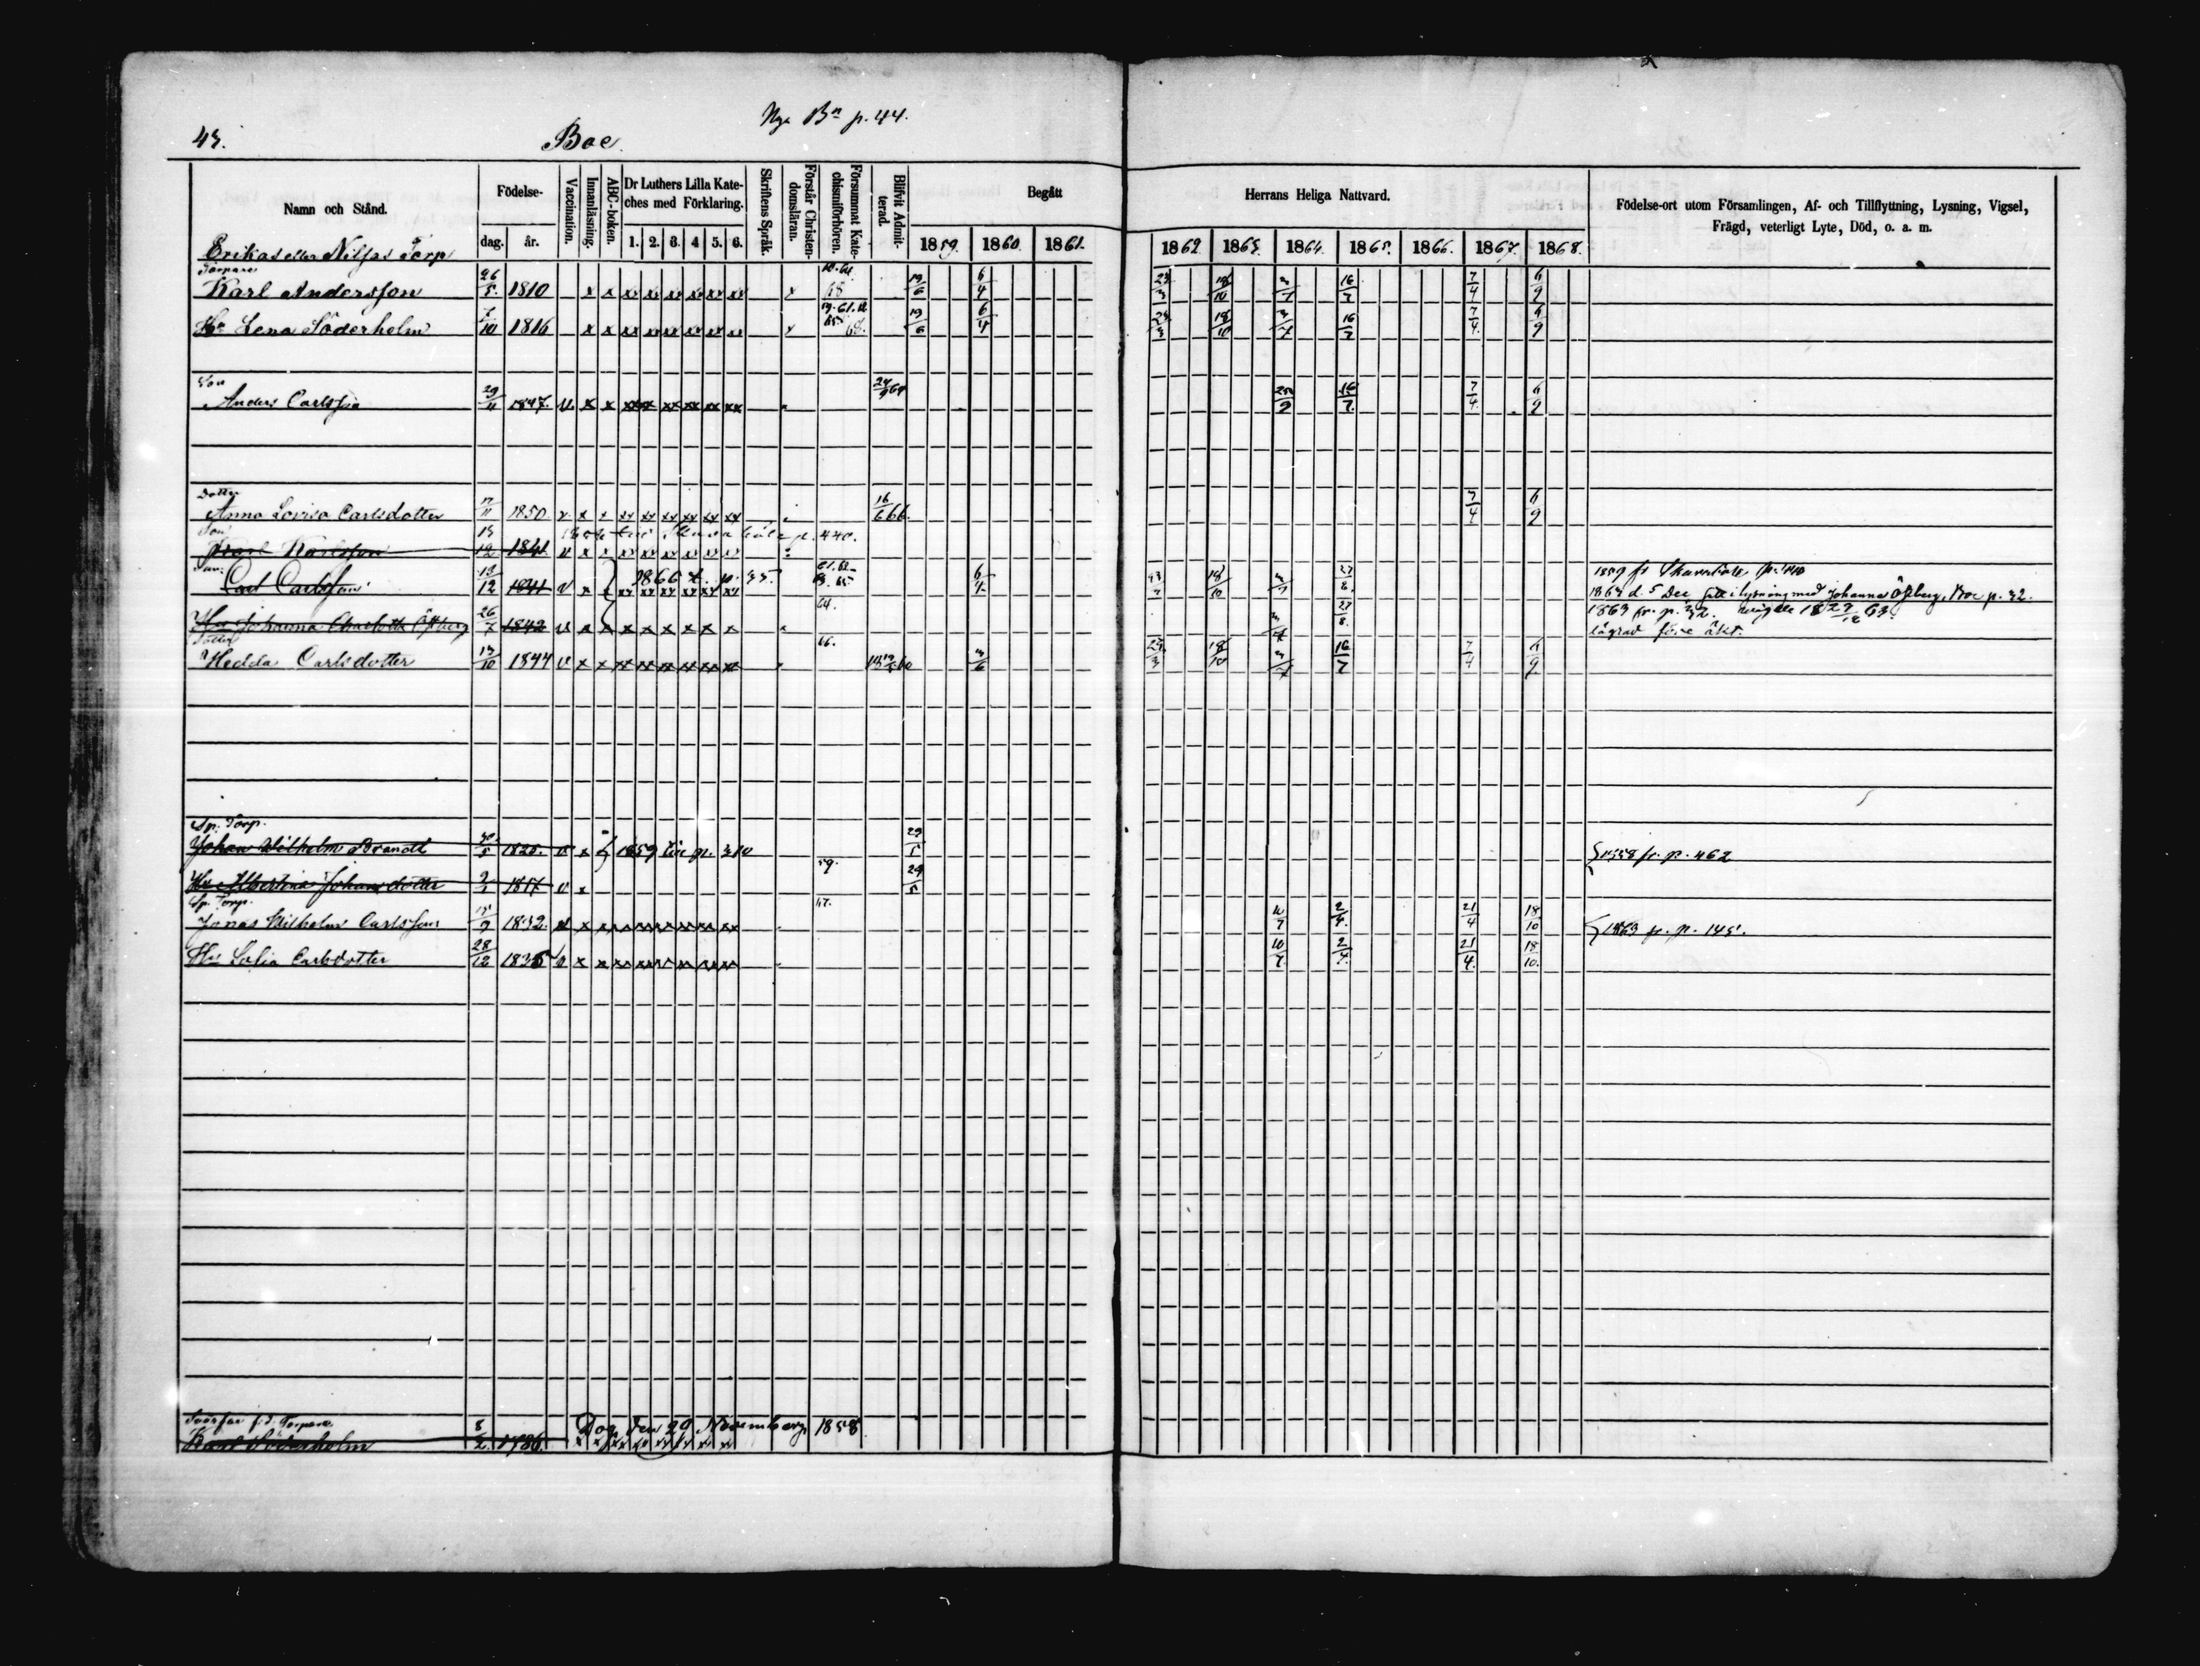 43. Boe. Nya Bn p. 44.
Namn och Stånd. Födelse- dag. år. Vaccination. Innanläsning. ABC-boken. Dr Luthers Lilla Kateches med Förklaring. 1. 2. 3. 4 5. 6. Skriftens Språk. Förstår Christendomsläran. Försummat Katechismiförhören. Blifvit Admitterad. Begått Herrans Heliga Nattvard. 1859. 1860. 1861. 1862 1863. 1864. 1865. 1866. 1867. 1868. Födelse-ort utom Församlingen, Af- och Tillflyttning, Lysning, Vigsel, Frägd, veterligt Lyte, Död, o. a. m.
Erikas eller Nilsas Torp
Torpare
Karl Andersson 26/5 1810 x x xx xx xx xx xx xx x 68 19/6 6/4 23/3 18/10 3/7 16/7 7/4 6/9
Hu Lena Söderholm 7/10 1816 x x xx xx xx xx xx xx x 68. 19/6 6/4 23/3 18/10 3/7 16/7 7/4 6/9
Son
Anders Carlsson 29/11 1847. v x x xx xx xx xx xx xx 24/9 64 25/9 16/7. 7/4. 6/9
Dotter
Anna Lovisa Carlsdotter 17/11 1850 v x x xx xx xx xx xx xx 16/6 66. 7/4 6/9
Son
Karl Karlsson 13/12 1841 v x x xx xx xx xx xx xx p. 440.
Son:
Carl Carlsson 13/12 1841 v x 1866 t. p. 35. 6/4 18/10 3/7 27/8. 1859 fr Skarrböle p. 440
1863 d. 5 Dec till lysning med Johanna Östberg, Boe p. 32.
Hu Johanna Charlotta Östberg 26/7 1842 v x x x x x x x 64. 3/7 27/8. 1863 fr. p. 32. 18 27/12 63.
lägrad före äkt.
Dotter
Hedda Carlsdotter 13/10 1844 v x x xx xx xx xx xx xx 66. 3/6 23/3 18/10 3/7 16/7 7/4 6/9
Sp. Torp.
Johan Wilhelm Brandt 30/5 1825. v x 1859 till p. 310 29/5 1858 fr. p. 462
Hu Albertina Johansdotter 1817 v x 59. 29/5
Sp. Torp.
Jonas Wilhelm Carlsson 15/9 1832. v x x xx xx xx xx xx xx 67. 10/7 2/4. 21/4 18/10 1863 fr. p. 145.
Hu Sofia Carlsdotter 28/12 1835 v x x xx xx xx xx xx xx 10/7. 2/4. 21/4. 18/10.
Svärfar f.d. Torpare
Karl Söderholm 8/2. 1786. Dog den 29 November 1858